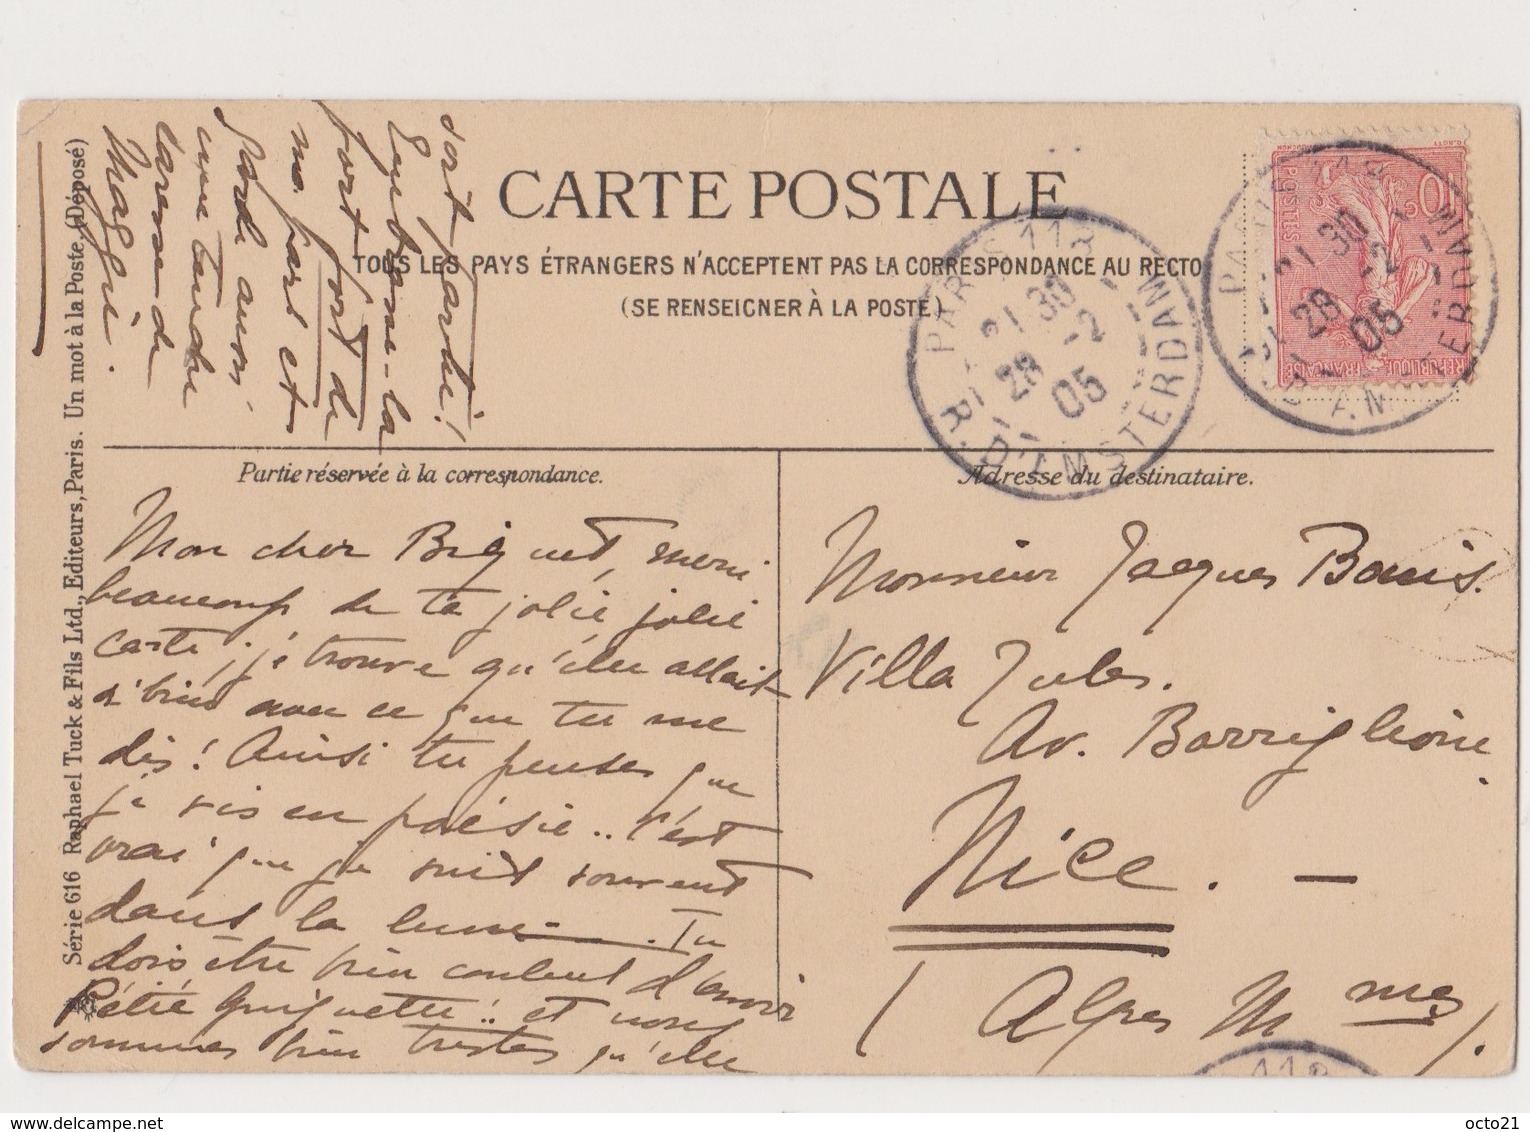 CARTE POSTALE
TOUS LES PAYS ÉTRANGERS N'ACCEPTENT PAS LA CORRESPONDANCE AU RECTO
(SE RENSEIGNER À LA POSTE)
Partie réservée à la correspondance.
Mon cher Biquet, merci
beaucoup de ta jolie jolie
carte; je trouve qu'elle allait
si bien avec ce que tu me
dis! Ainsi tu penses que
je vis en poésie.. C'est
vrai que je suis souvent
dans la lune. Tu
dois être bien content d'avoir
Petite Guiguette!! et nous
sommes bien tristes qu'elle
soit partie!
Embrasse-la
fort fort de
ma part et
garde aussi
une tendre
caresse de
Maggie.
Adresse du destinataire.
Monsieur Jacques Bouis.
Villa Jules.
Av. Barriglione
Nice. —
(Alpes Mmes).
PARIS 118
21 30
28 -2
05
R. D'AMSTERDAM
PARIS 118
21 30
28 -2
05
R. D'AMSTERDAM
10c
POSTES
REPUBLIQUE FRANÇAISE
118
Série 616 Raphael Tuck & Fils Ltd., Editeurs, Paris. Un mot à la Poste. (Déposé)
octo21